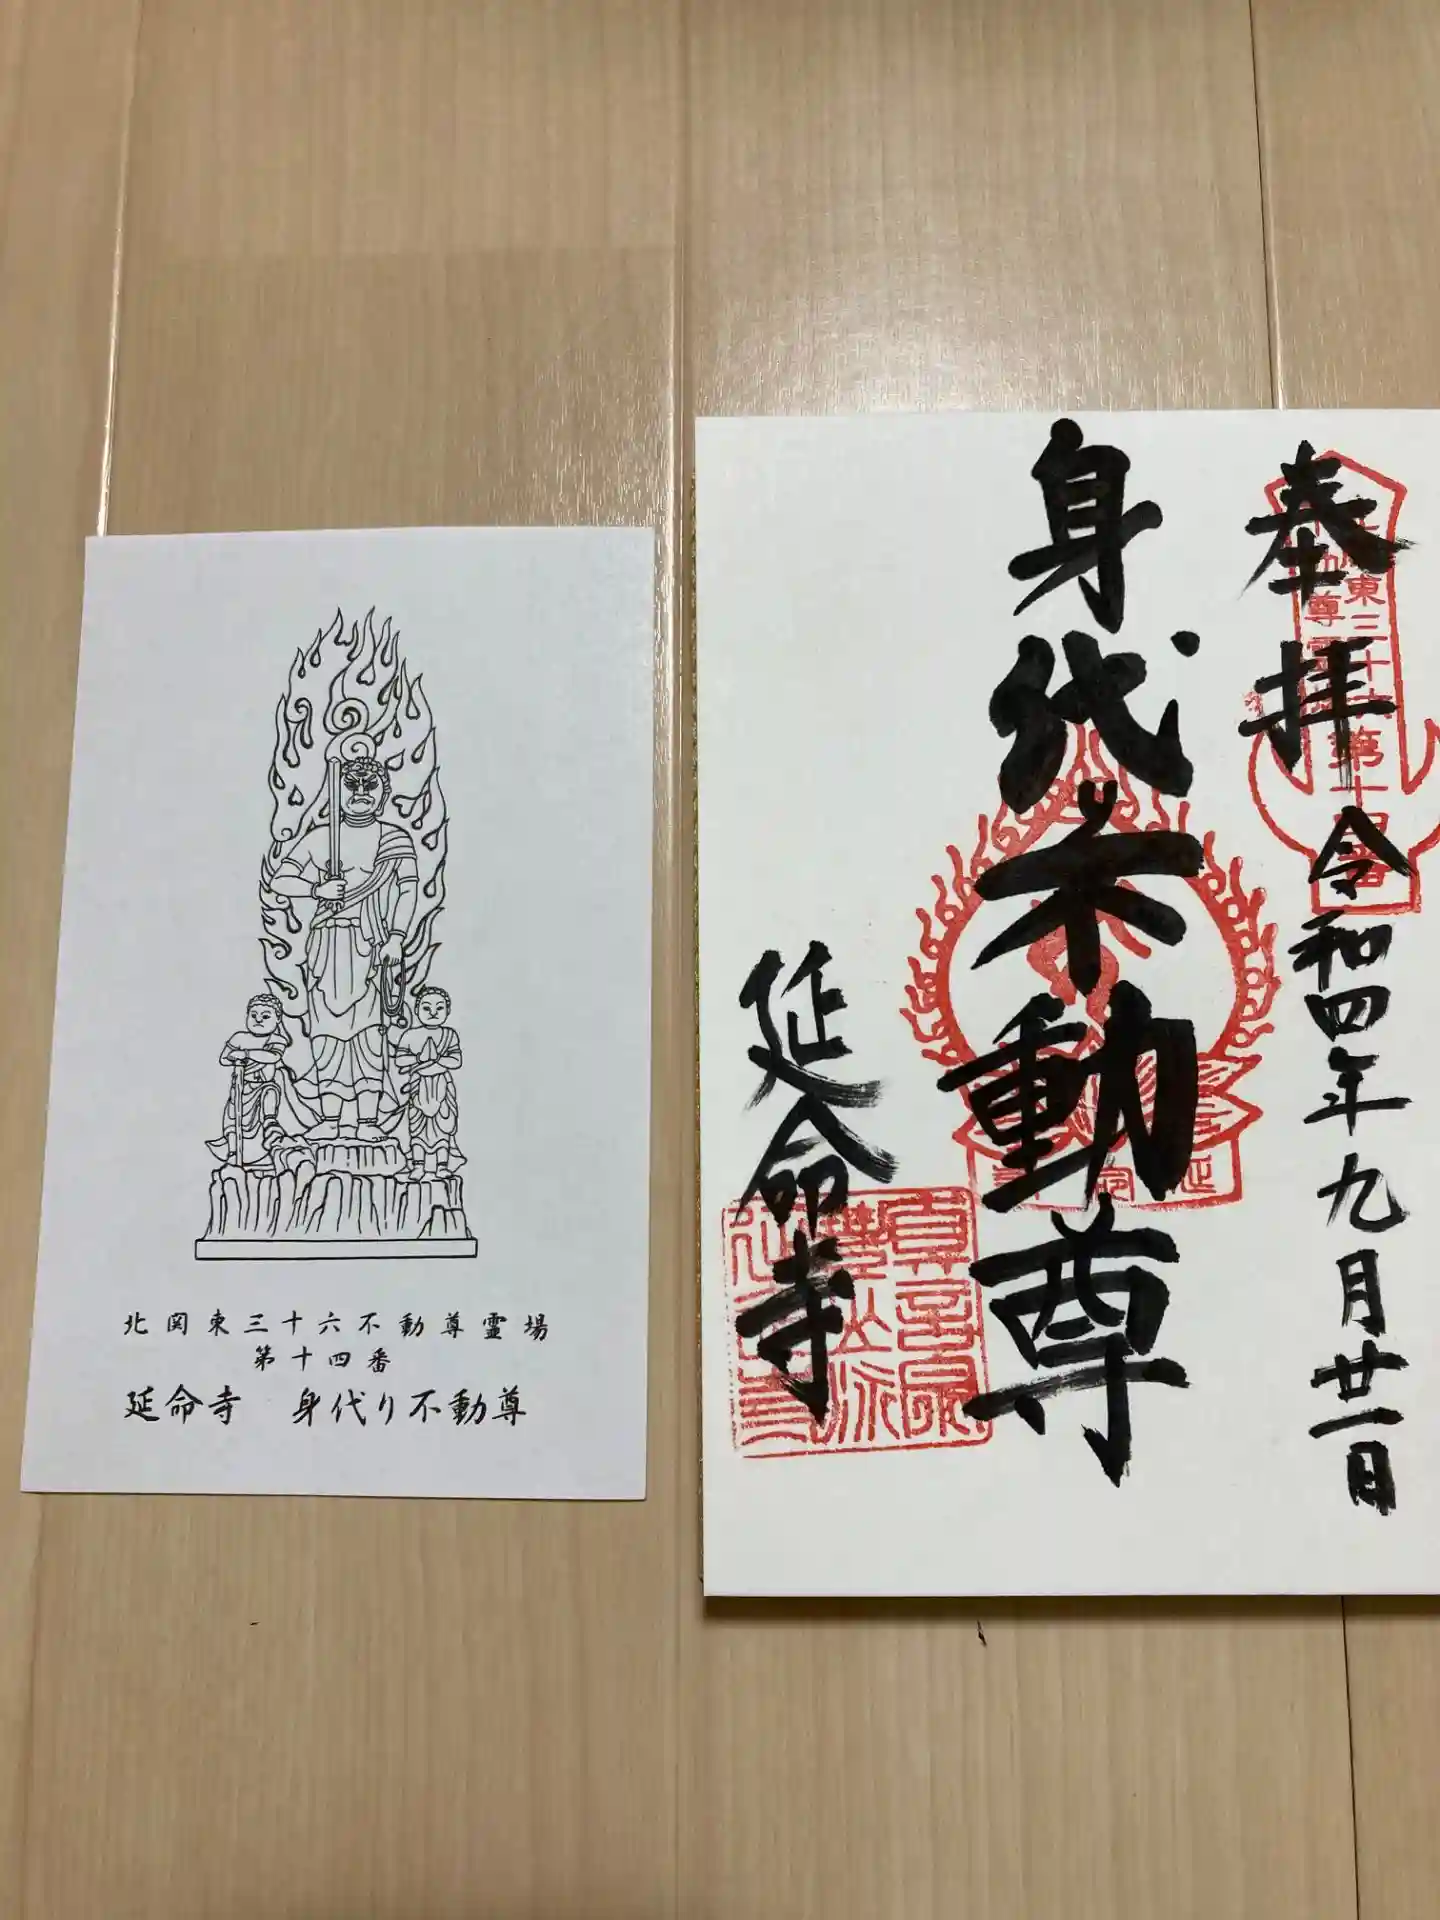 北関東三十六不動尊霊場
第十四番
延命寺 身代り不動尊
奉拝 令和四年九月廿一日
身代不動尊
延命寺